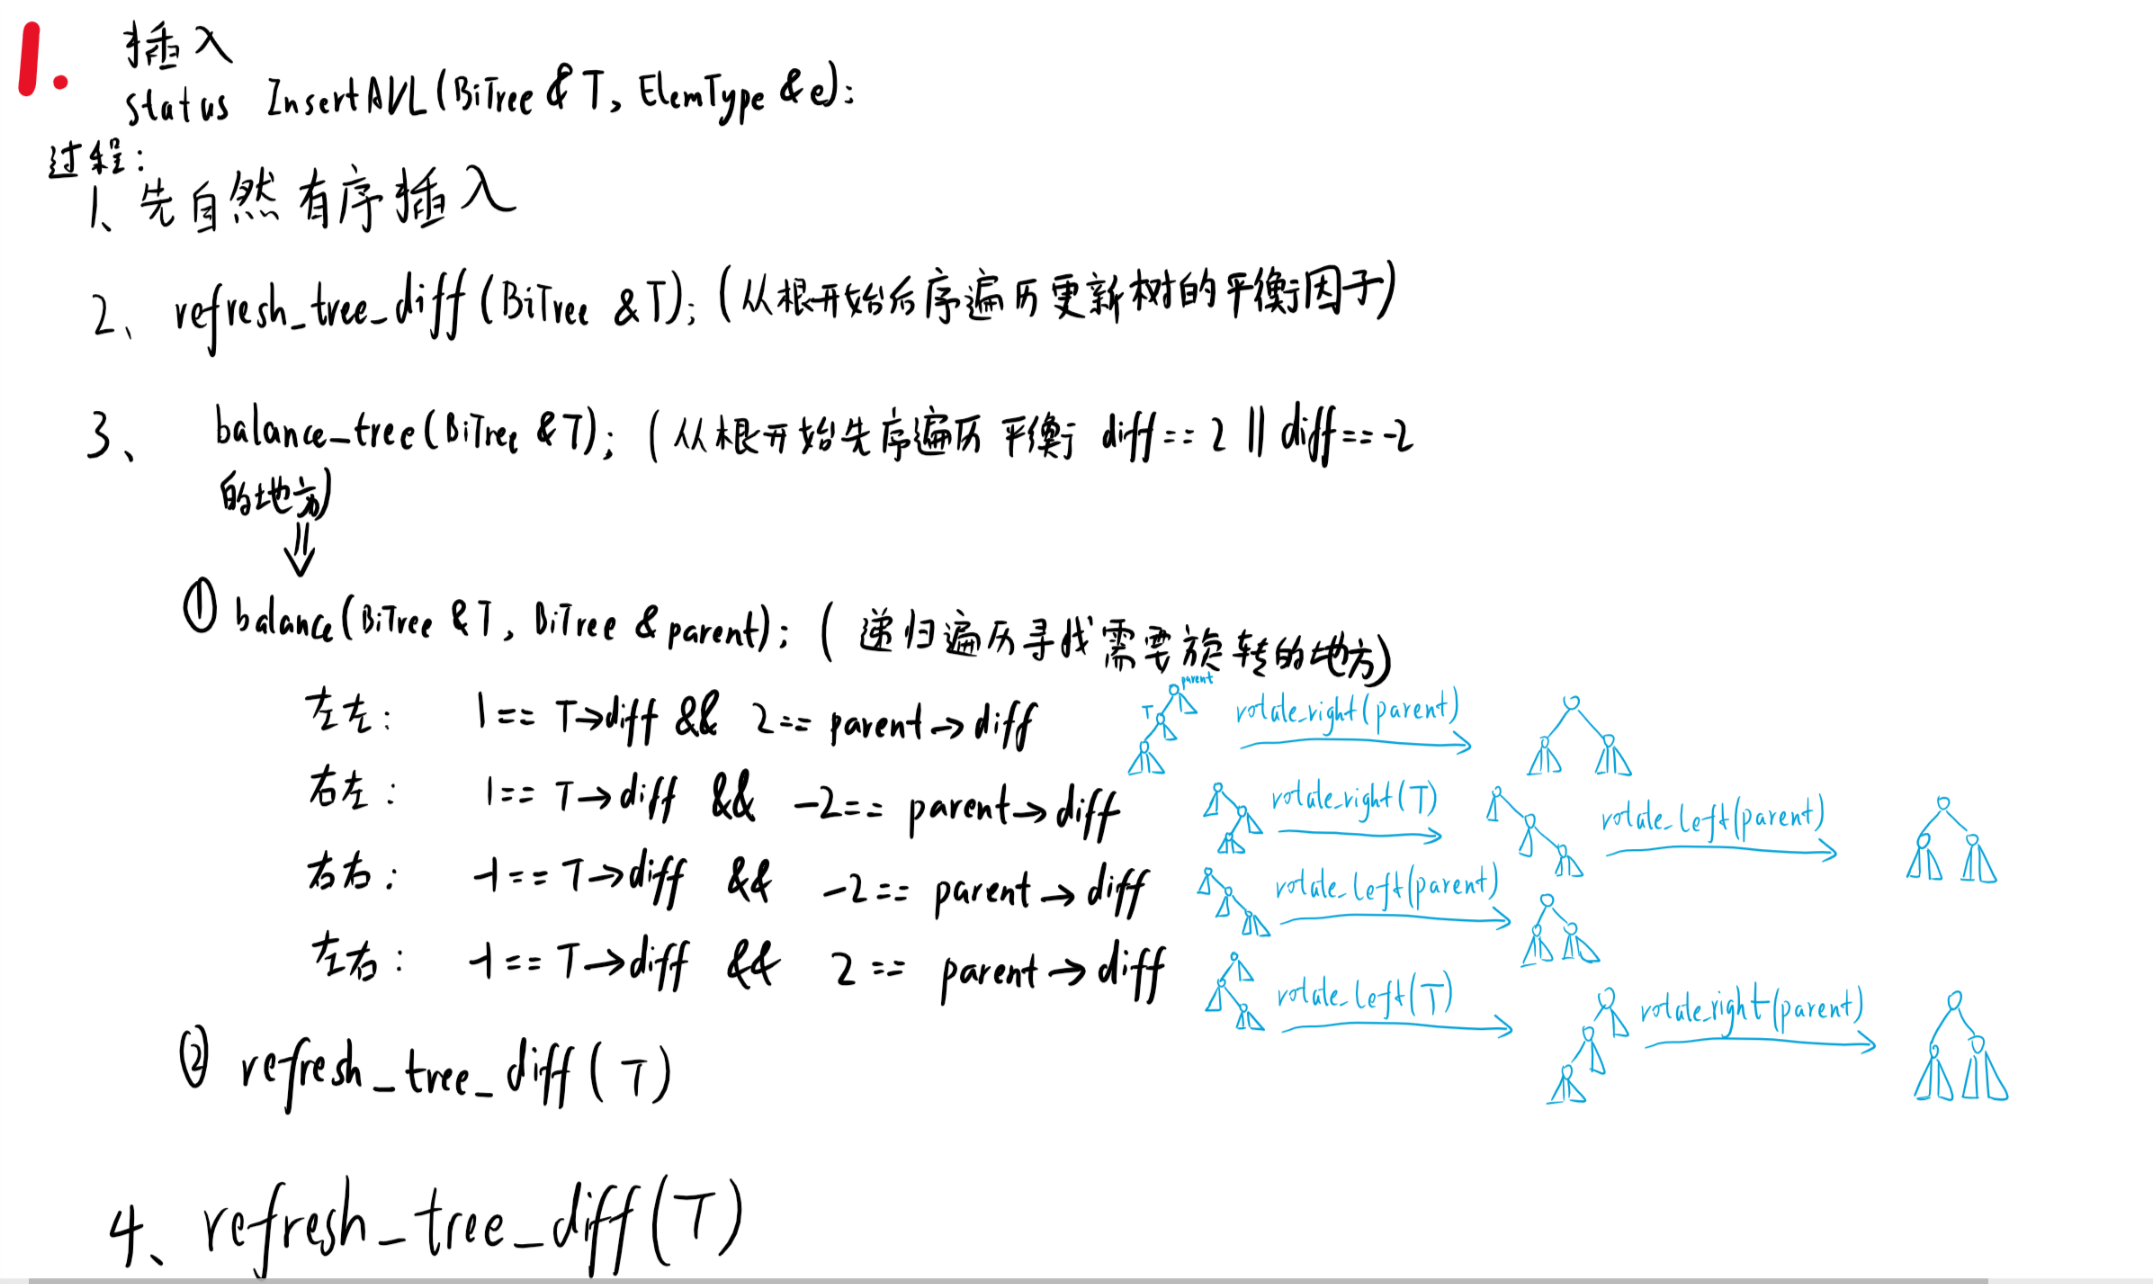 1.
插入
Status InsertAVL(BiTree &T, ElemType &e);
过程:
1、先自然有序插入
2、refresh_tree_diff(BiTree &T);(从根开始后序遍历更新树的平衡因子)
3、balance_tree(BiTree &T);(从根开始先序遍历平衡 diff==2 || diff==-2
的地方)
① balance(BiTree &T, BiTree &parent);(递归遍历寻找需要旋转的地方)
左左: 1==T→diff && 2==parent→diff
parent
T
rotate_right(parent)
右左: 1==T→diff && -2==parent→diff
rotate_right(T)
rotate_left(parent)
右右: -1==T→diff && -2==parent→diff
rotate_left(parent)
左右: -1==T→diff && 2==parent→diff
rotate_left(T)
rotate_right(parent)
② refresh_tree_diff(T)
4、refresh_tree_diff(T)